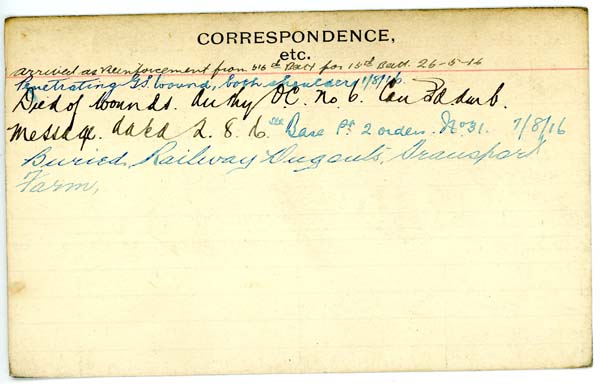 CORRESPONDENCE,
etc.
Arrived as Reinforcement from 56th Batt for 15th Batt. 26-5-16
Penetrating G.S. wound, both shoulders 1/8/16.
Died of wounds. Authy O.C. No 6. Can Fd Amb.
Message. dated 2. 8. 16 Base Pt 2 orders. No 31. 7/8/16
Buried, Railway Dugouts, Transport
Farm,